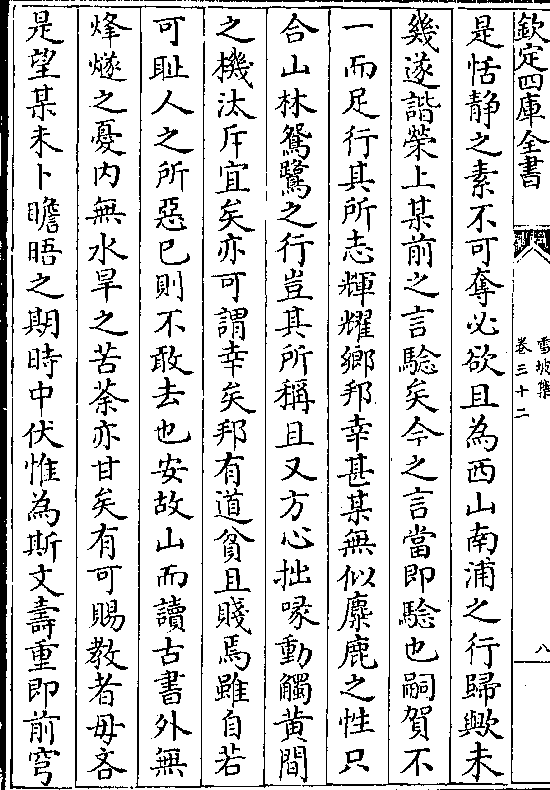 欽定四庫全書
雪坡集
卷三十二
八
是恬静之素不可奪必欲且為西山南浦之行歸歟未
幾遂諧榮上某前之言驗矣今之言當即驗也嗣賀不
一而足行其所志輝耀鄉邦幸甚某無似麋鹿之性只
合山林鴛鷺之行豈其所稱且又方心拙喙動觸黄間
之機汰斥宜矣亦可謂幸矣邦有道貧且賤焉雖自若
可耻人之所惡已則不敢去也安故山而讀古書外無
烽燧之憂内無水旱之苦荼亦甘矣有可賜教者毋吝
是望某未卜瞻晤之期時中伏惟為斯文壽重即前穹